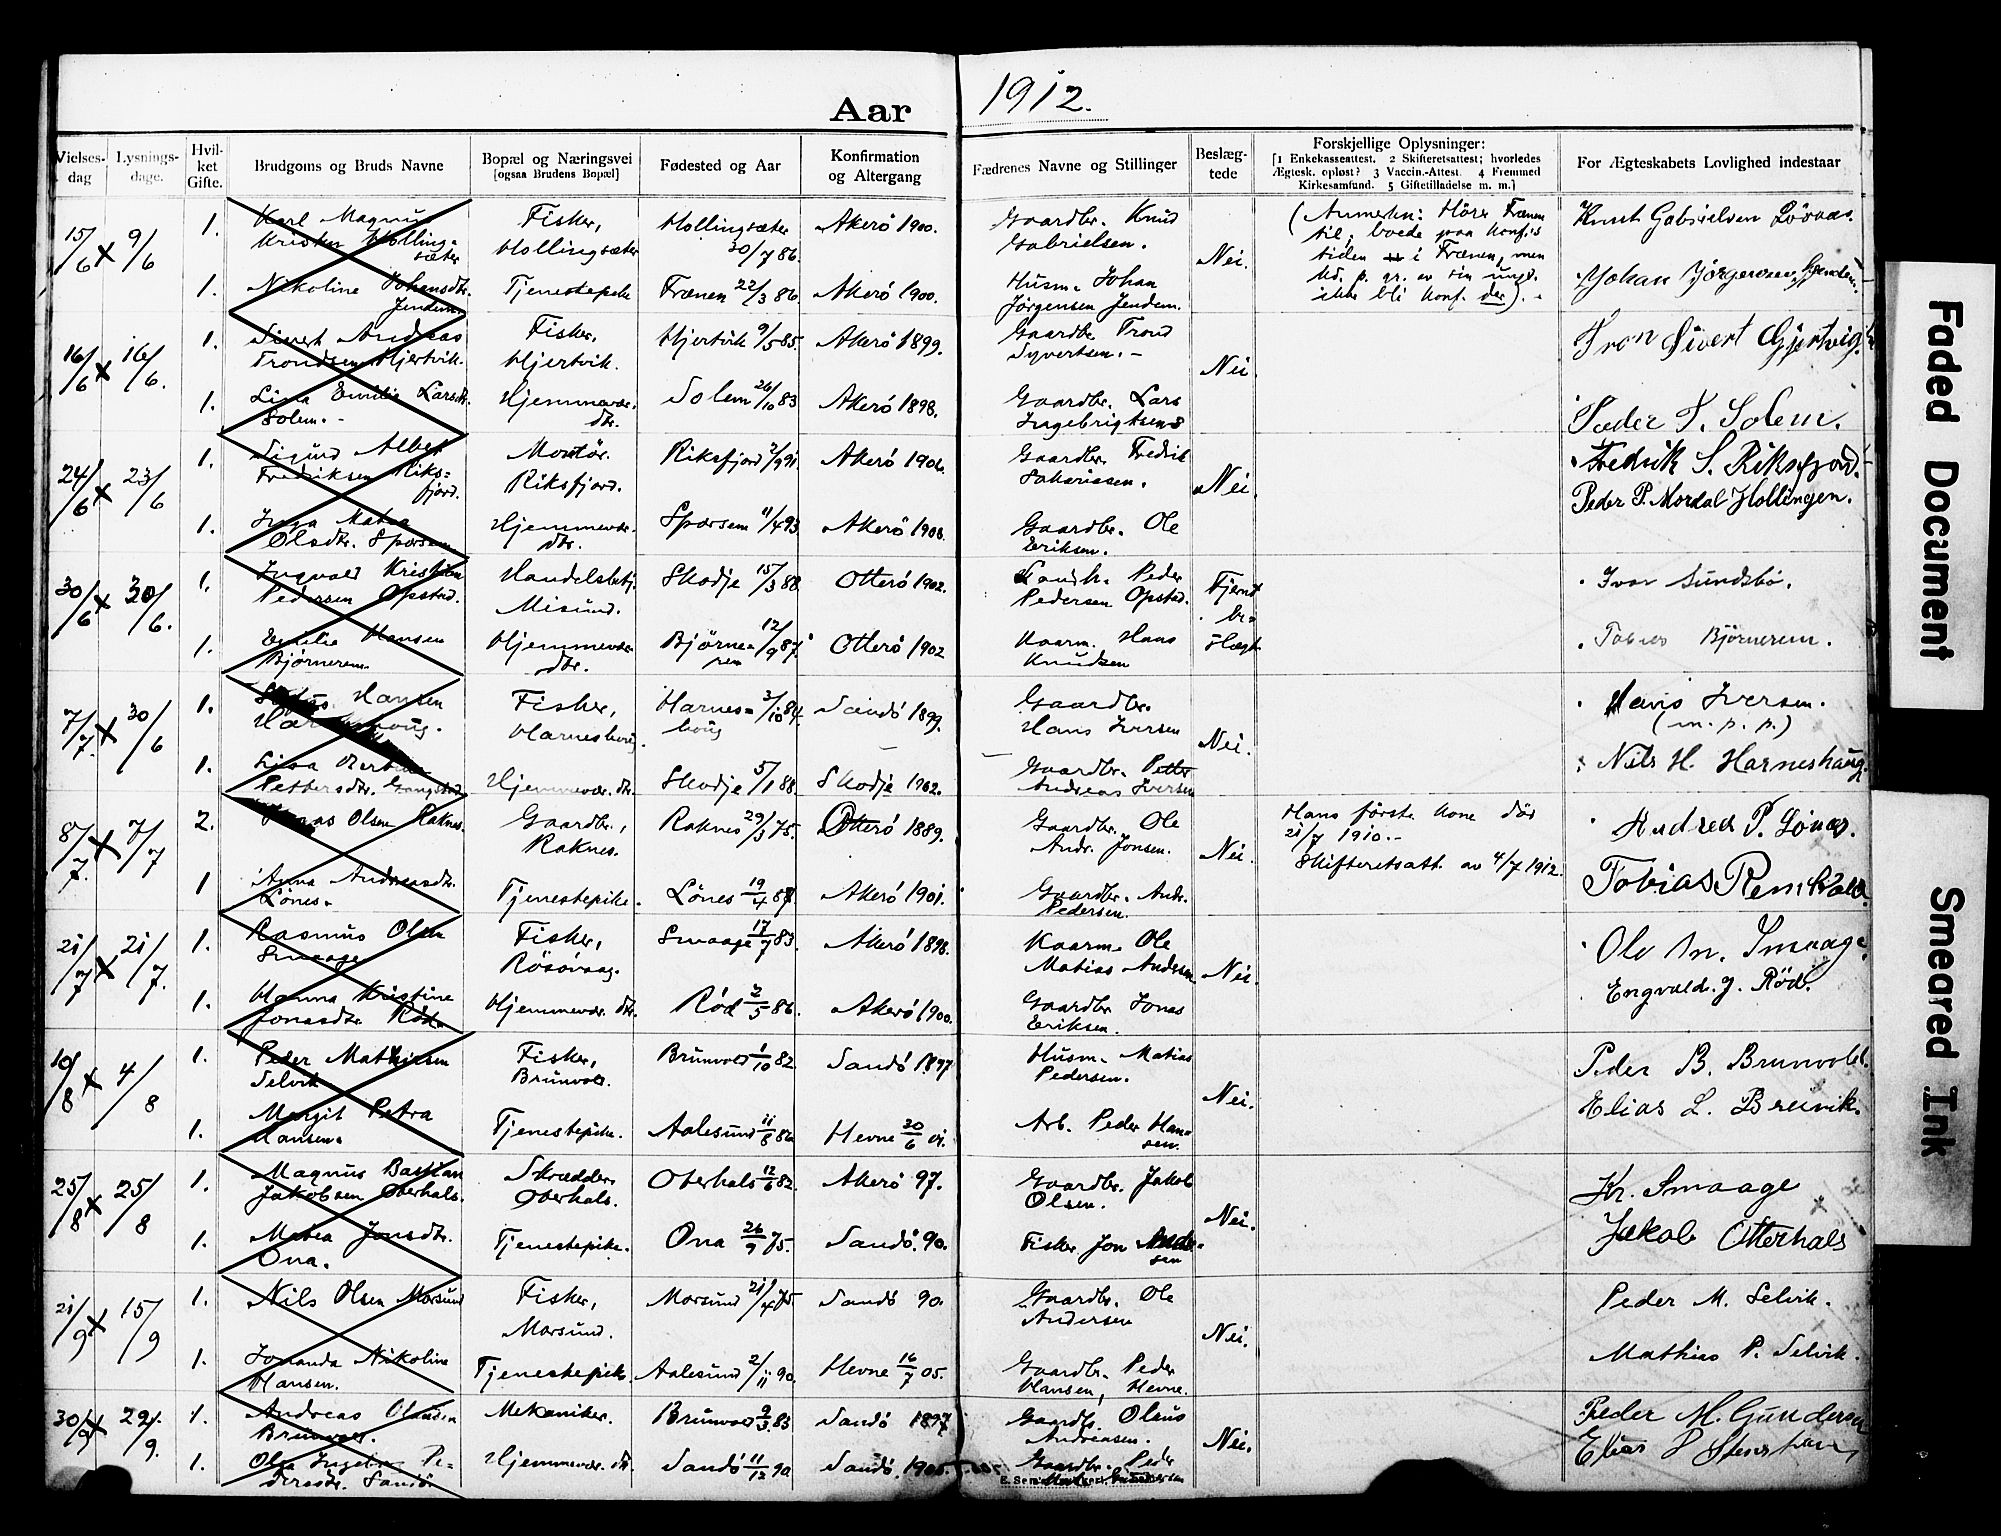 Aar 1912.
Vielses-dag
Lysnings-dage.
Hvil-ket Gifte.
Brudgoms og Bruds Navne
Bopæl og Næringsvei [ogsaa Brudens Bopæl]
Fødested og Aar
Konfirmation og Altergang
Fædrenes Navne og Stillinger
Beslæg-tede
Forskjellige Oplysninger:
[1 Enkekasseattest. 2 Skifteretsattest; hvorledes
Ægtesk. opløst? 3 Vaccin.-Attest. 4 Fremmed
Kirkesamfund. 5 Giftetilladelse m. m.]
For Ægteskabets Lovlighed indestaar
15/6 x 9/6 1. Karl Magnus Fisker, Hollingsæter Akerö 1900. Gaardbr. Knud
Hollingsæter 30/7 86. Gabrielsen. Nei.
1. Nikoline Johansdtr. Tjenestepike Frænen 22/3 86. Akerö 1900. Husm. Johan
Jendem. Jörgensen Jendem.
(Anmerkn: Hörer Frænen
til, boede paa konf.s
tiden i Frænen, men
ikke bli konf. der).-
Knut Gabrielsen
Johan Jørgensen Jendem.
16/6 x 16/6. 1. Sivert Andreas Fisker, Hjertvik 9/5 85. Akerö 1899. Gaardbr. Trond
Trondsen Hjertvik. Hjertvik. Syvertsen. - Nei.
1. Lina Emilie Larsdtr. Hjemmevær. Solem 26/10 83 Akerö 1898. Gaardbr. Lars
Solem. - dtr. Ingebrigtsens
Tron Sivert
Peder T. Solem.
24/6 x 23/6 1. Sigurd Albert Montör. Riksfjord 2/9 91. Akerö 1906. Gaardbr. Fredrik
Fredriksen Riks- Riksfjord. Sakariassen. Nei.
fjord.
1. Inga Hjemmevær. Sporsem 11/4 93. Akerö 1908. Gaardbr. Ole
Olsdtr. Sporsem dtr. Eriksen.
Fredrik S. Riksfjord.
Peder P. Mordal Hollingen.
30/6 x 30/6. 1. Ingvald Kristian Handelsbetj. Skodje 15/3 88. Otterö 1902. Peder Fjernt
Pedersen Opstad. Misund. Pedersen Opstad. be-
1. Emilie Hansen Hjemmevær. Bjørne- 12/9 87. Otterö 1902 Kaarm. Hans slægt
Bjørnerem. dtr. rem Knudsen
Ivar Sundsbö.
Tobias Bjørnerem.
7/7. x 30/6 1. Hansen Fisker, Harnes- 3/10 84. Sandö 1899. Gaardbr.
Harneshoug. houg Hans Iversen Nei.
1. Lina Hjemmevær. dtr. Skodje 5/1 88. Skodje 1902. Gaardbr. Petter
Pettersdtr. Andreas Iversen
Hans Iversen.
(m. p. p.)
Nils H. Harneshaug
8/7. x 7/7 2. Olsen Raknes. Gaardbr., Raknes 29/3 75. Otterö 1889. Gaardbr. Ole
Raknes. Andr. Jonsen. Nei.
1 Anna Andreasdtr. Tjenestepike. Lönes 19/4 87. Akerö 1901. Gaardbr. Andr.
Lönes. Pedersen.
Hans første kone död
21/7 1910.-
Skifteretsatt. av 4/7 1912.
Andreas P. Lönes.
Tobias
21/7 x 21/7. 1. Rasmus Olsen Fisker, Smaage 17/7 83. Akerö 1898. Kaarm. Ole
Smaage Rösövaag. Matias Andersen Nei.
1. Hanna Kristine Hjemmevær. dtr. Rød 2/5 86. Akerö 1900. Gaardbr. Jonas
Jonasdtr. Röd. Eriksen.
Ole M. Smaage.
Engvald. J. Röd.
10/8 x 4/8 1. Peder Mathiasen Fisker, Brunvold 1/10 82. Sandö 1897 Husm. Matias
Selvik Brunvold. Pedersen. Nei.
1. Margit Petra Tjenestepike. Aalesund 11/8 86 Hevne 30/6 01. Arb. Peder Han-
Hansen. sen.
Peder B. Brunvold.
Elias L. Breivik.
25/8 x 25/8 1. Magnus Bastian Skrædder Oterhals 12/6 82. Akerö 97. Gaardbr. Jakob
Jakobsen Oterhals. Oterhals. Olsen. Nei.
1. Matea Jonsdtr. Tjenestepike. Ona 26/9 75. Sandö. 90. Fisker Jon Ander-
Ona. sen
Kr. Smaage
Jakob Otterhals
21/9 x 15/9 1. Nils Olsen Morsund Fisker, Morsund 21/4 75. Sandö 90. Gaardbr. Ole
Morsund. Andersen Nei.
1. Jonanda Nikoline Tjenestepike Aalesund 2/11 90. Hevne 16/7 05. Gaardbr. Peder
Hansen. Hansen, Hevne.
Peder M. Selvik.
Mathias P. Selvik.
30/9 x 29/9. 1. Andreas Olausen Mekaniker. Brunvold 9/3 83 Sandö 1897 Gaardbr. Olaus
Brunvold. Andreasen. Nei.
1. Olga Pe- Hjemmevær. dtr. Sandö 11/12 90 Sandö. 1905 Gaardbr. Peder
dersdtr. Sandö.
Peder M. Gundersen
Elias P
Faded Document
Smeared Ink